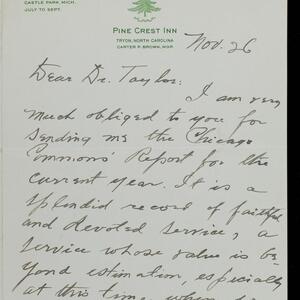 CASTLE PARK, MICH.
JULY TO SEPT.
PINE CREST INN
TRYON, NORTH CAROLINA
CARTER P. BROWN, MGR.
Nov. 26
Dear Dr. Taylor:
I am very
much obliged to you for
sending me the Chicago
Commons' Report for the
current year. It is a
splendid record of faithful
and devoted service, a
service whose value is be-
yond estimation, especially
at this time when